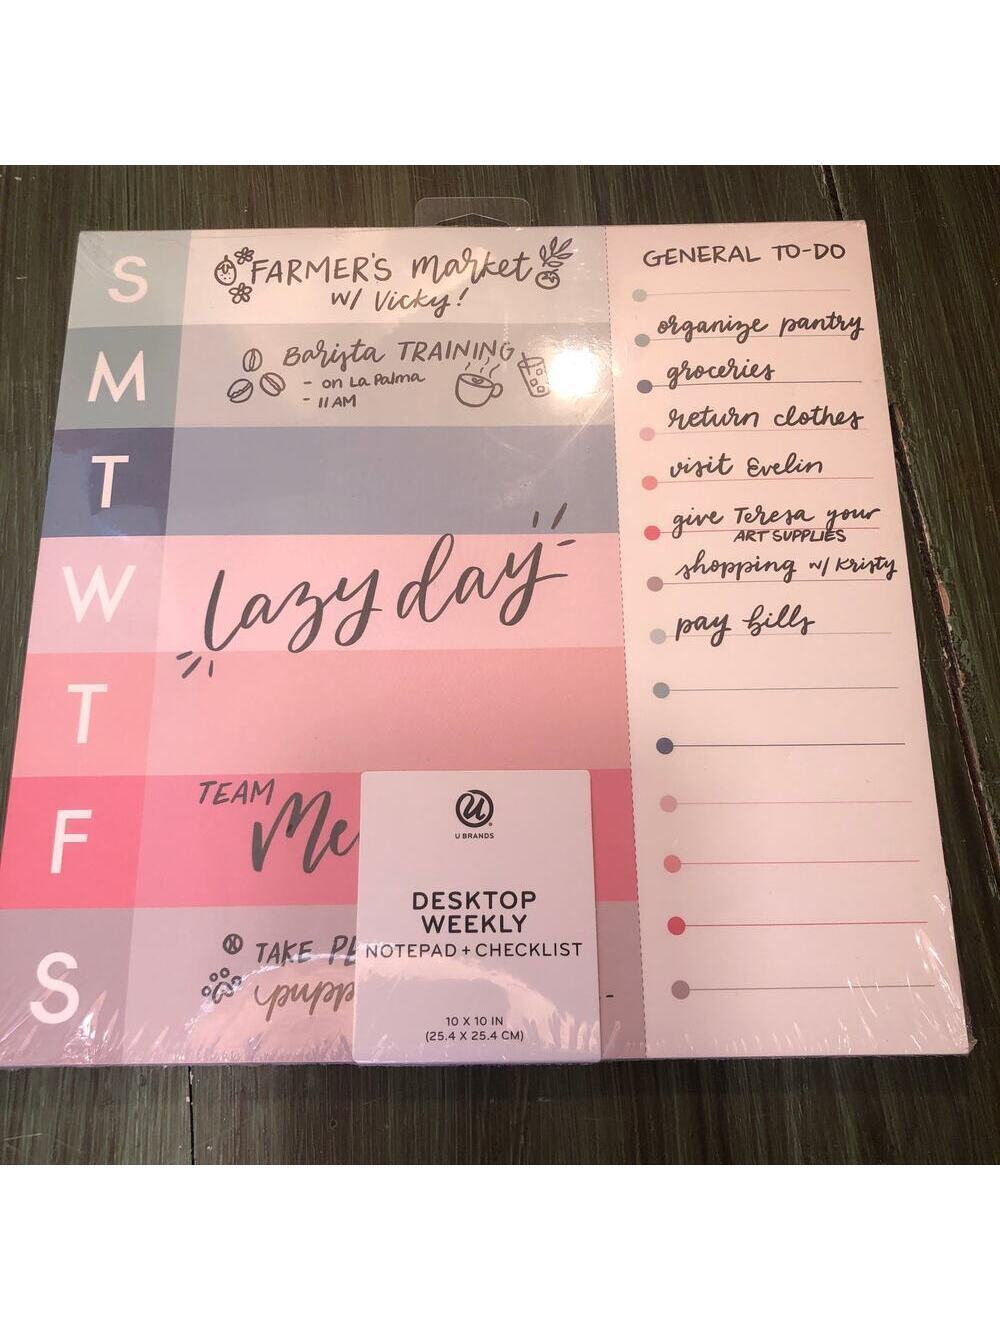 S
FARMER'S market
w/ Vicky!
M
Barista TRAINING
- on La Palma
- 11 AM
T
W
lazy day
T
F
TEAM
Me
S
TAKE
GENERAL TO-DO
organize pantry
groceries
return clothes
visit Evelin
give Teresa your
ART SUPPLIES
shopping w/ Kristy
pay bills
U
U BRANDS
DESKTOP
WEEKLY
NOTEPAD + CHECKLIST
10 X 10 IN
(25.4 X 25.4 CM)